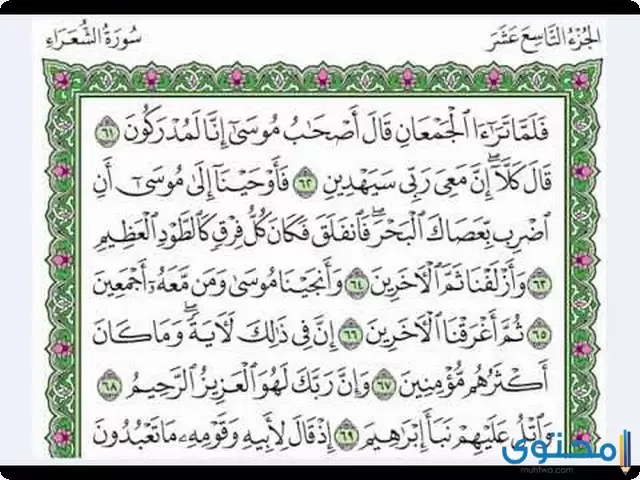 الجزء التاسع عشر
سورة الشعراء
فَلَمَّا تَرَٰٓءَا ٱلْجَمْعَانِ قَالَ أَصْحَٰبُ مُوسَىٰٓ إِنَّا لَمُدْرَكُونَ ٦١
قَالَ كَلَّآ ۖ إِنَّ مَعِىَ رَبِّى سَيَهْدِينِ ٦٢ فَأَوْحَيْنَآ إِلَىٰ مُوسَىٰٓ أَنِ
ٱضْرِب بِّعَصَاكَ ٱلْبَحْرَ ۖ فَٱنفَلَقَ فَكَانَ كُلُّ فِرْقٍ كَٱلطَّوْدِ ٱلْعَظِيمِ
٦٣ وَأَزْلَفْنَا ثَمَّ ٱلْءَاخَرِينَ ٦٤ وَأَنجَيْنَا مُوسَىٰ وَمَن مَّعَهُۥٓ أَجْمَعِينَ
٦٥ ثُمَّ أَغْرَقْنَا ٱلْءَاخَرِينَ ٦٦ إِنَّ فِى ذَٰلِكَ لَءَايَةً ۖ وَمَا كَانَ
أَكْثَرُهُم مُّؤْمِنِينَ ٦٧ وَإِنَّ رَبَّكَ لَهُوَ ٱلْعَزِيزُ ٱلرَّحِيمُ ٦٨
وَٱتْلُ عَلَيْهِمْ نَبَأَ إِبْرَٰهِيمَ ٦٩ إِذْ قَالَ لِأَبِيهِ وَقَوْمِهِۦ مَا تَعْبُدُونَ
محتوى
muhtwa.com